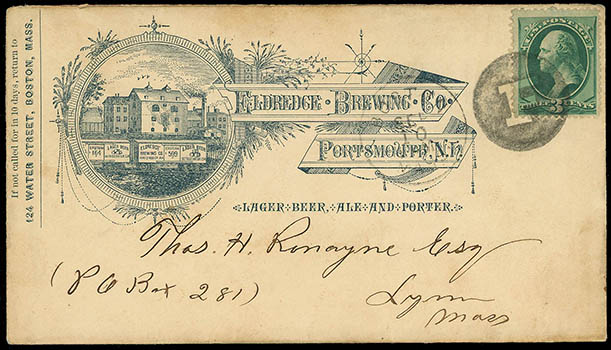 If not called for in 10 days, return to
124 WATER STREET, BOSTON, MASS.
U.S. POSTAGE
THREE 3 CENTS
ELDREDGE · BREWING · CO.
PORTSMOUTH, N.H.
ELDREDGE
BREWING CO.
LAGER·BEER, ·ALE·AND·PORTER.
Thos. H. Ronayne Esq
(P O Box 281)
Lynn
Mass